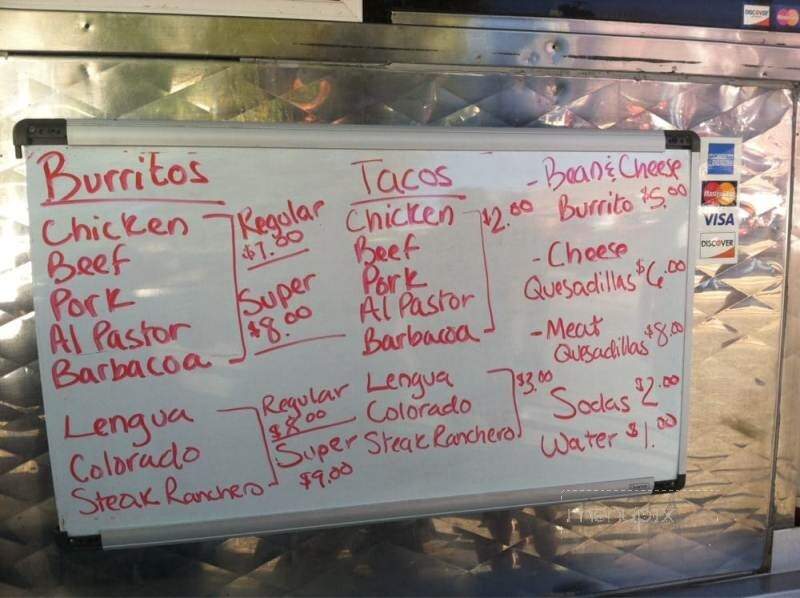 Burritos
Chicken
Beef
Pork
Al Pastor
Barbacoa
Regular
$7.00
Super
$8.00
Lengua
Colorado
Steak Ranchero
Regular
$8.00
Super
$9.00
Tacos
Chicken
Beef
Pork
Al Pastor
Barbacoa
$2.00
Lengua
Colorado
Steak Ranchero
$3.00
- Bean & Cheese
Burrito $5.00
- Cheese
Quesadillas $6.00
- Meat
Quesadillas $8.00
Sodas $2.00
Water $1.00
DISCOVER
MasterCard
VISA
DISCOVER
menupix